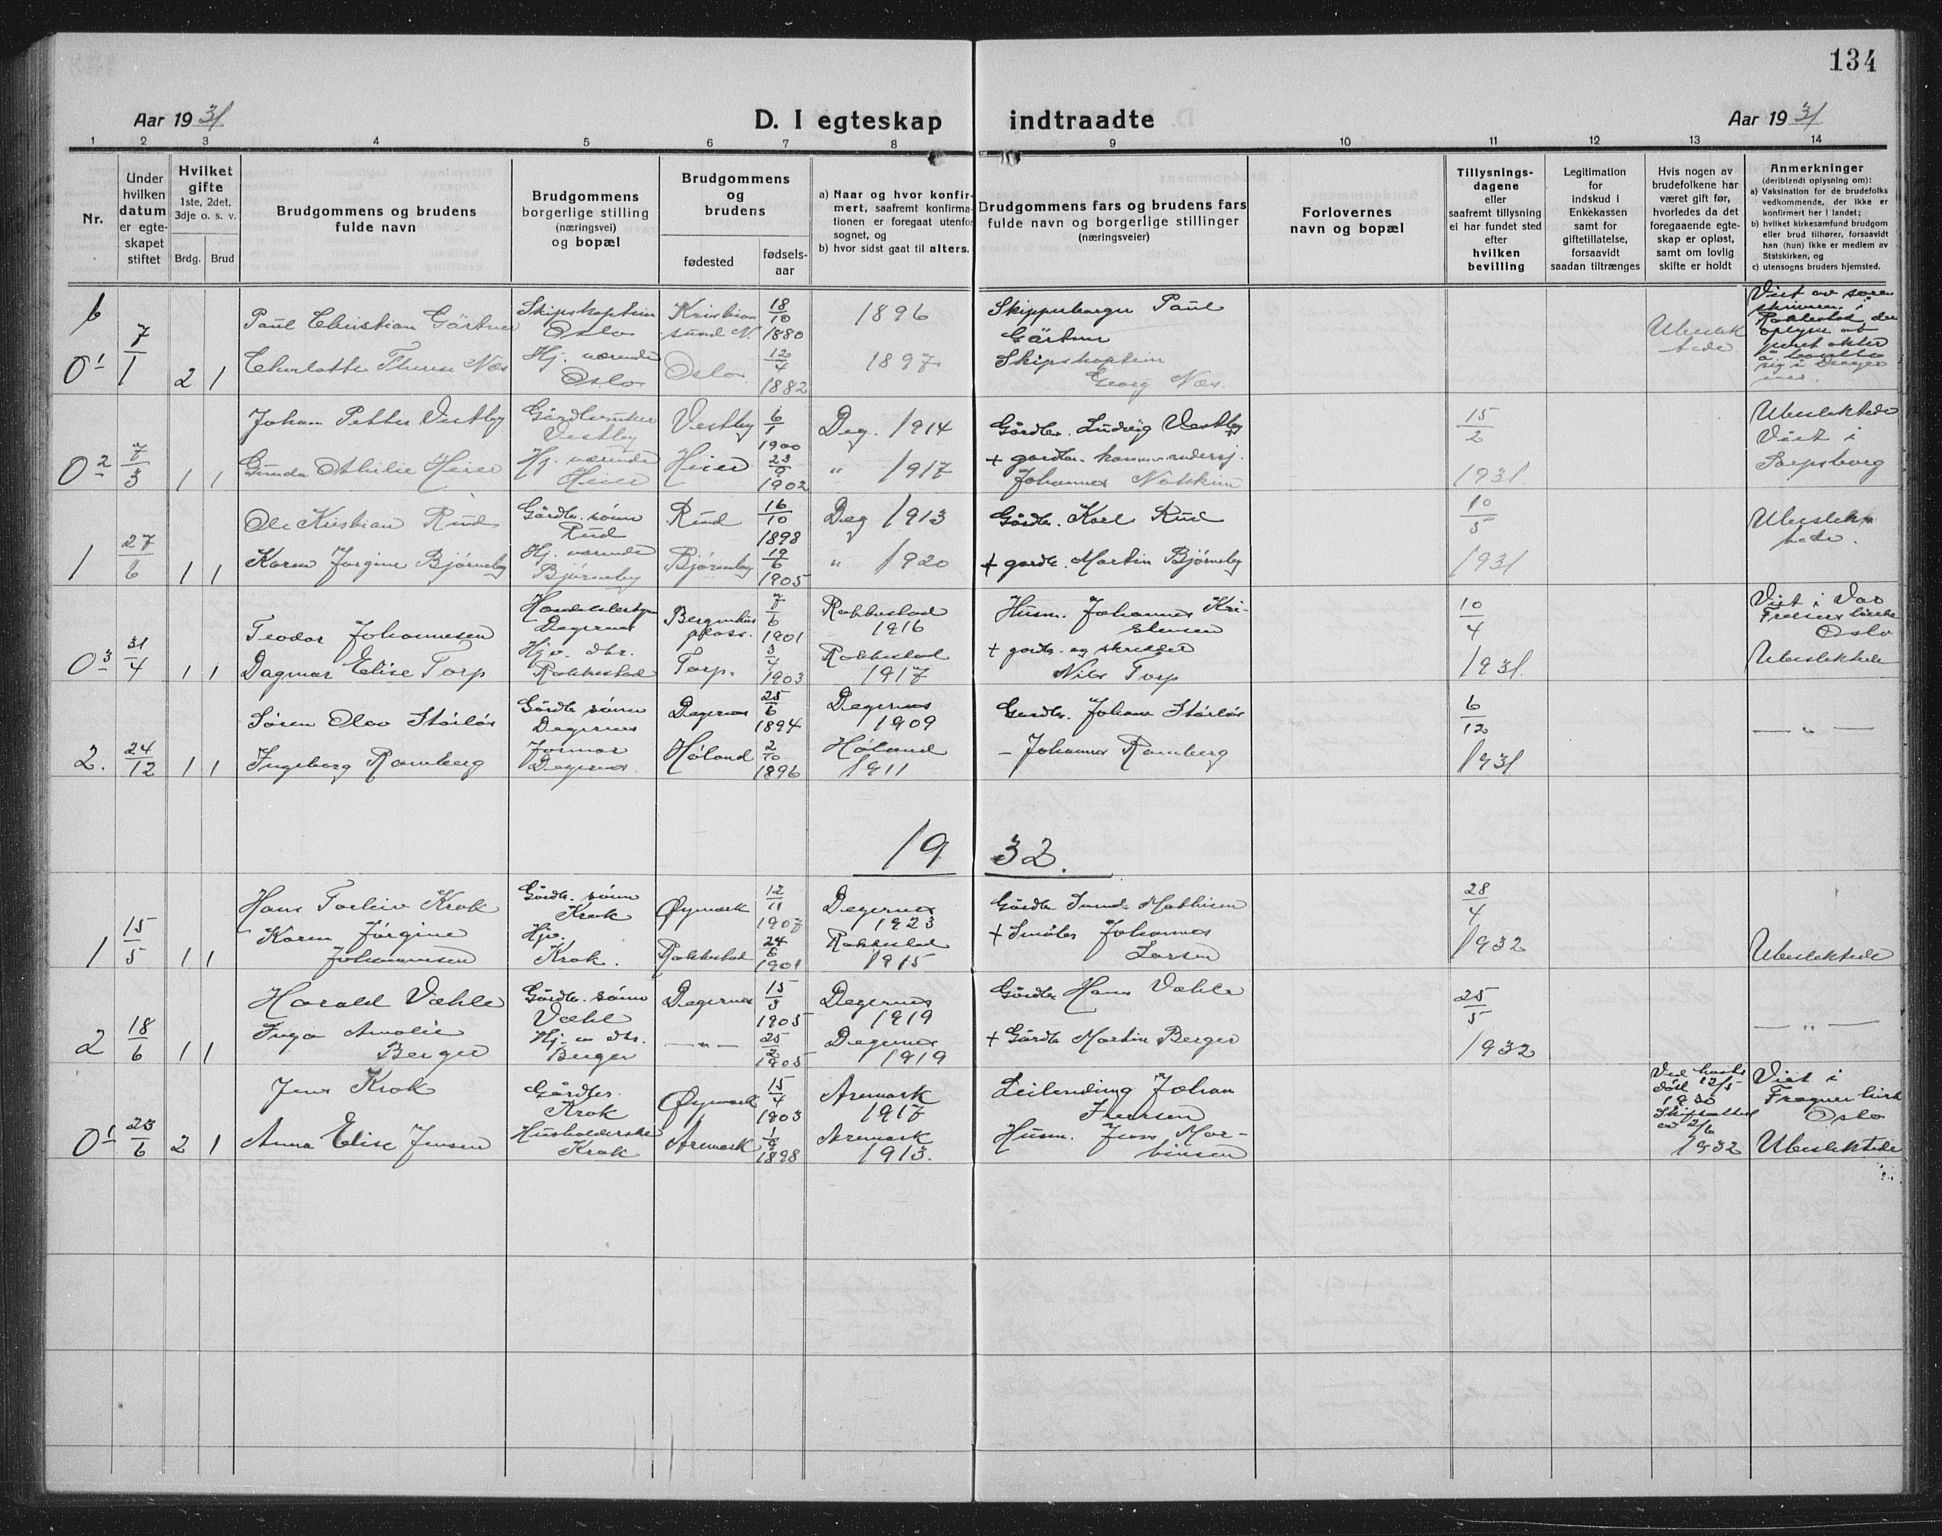 134
Aar 1931
D. I egteskap indtraadte
Aar 1931
1 2 3 4 5 6 7 8 9 10 11 12 13 14
Nr.
Under
hvilken
datum
er egte-
skapet
stiftet
Hvilket
gifte
1ste, 2det,
3dje o. s. v.
Brdg. Brud
Brudgommens og brudens
fulde navn
Brudgommens
borgerlige stilling
(næringsvei)
og bopæl
Brudgommens
og
brudens
fødested
fødsels-
aar
a) Naar og hvor konfir-
mert, saafremt konfirma-
tionen er foregaat utenfor
sognet, og
b) hvor sidst gaat til alters.
Brudgommens fars og brudens fars
fulde navn og borgerlige stillinger
(næringsveier)
Forlovernes
navn og bopæl
Tillysnings-
dagene
eller
saafremt tillysning
ei har fundet sted
efter
hvilken
bevilling
Legitimation
for
indskud i
Enkekassen
samt for
giftetillatelse,
forsaavidt
saadan tiltrænges
Hvis nogen av
brudefolkene har
været gift før,
hvorledes da det
foregaaende egte-
skap er opløst,
samt om lovlig
skifte er holdt
Anmerkninger
(deriblendt oplysning om):
a) Vaksination for de brudefolks
vedkommende, der ikke er
konfirmert her i landet;
b) hvilket kirkesamfund brudgom
eller brud tilhører, forsaavidt
han (hun) ikke er medlem av
Statskirken, og
c) utensogns bruders hjemsted.
0 1
7/1
2 1
Paul Christian Gärtner
Skipskaptein
Oslo
Kristian
sund N.
18/10
1880
1896
Skipperborger Paul
Gärtner
Charlotte Therese Næs
Hj. værende
Oslo
Oslo
12/4
1882
1897
Skipskaptein
Georg Næs.
Ubeslek
tede
Viet av soren
skriveren i
Rakkestad der
0 2
7/3
1 1
Johan Petter Vestby
Gårdbruker
Vestby
Vestby
6/1
1900
Deg. 1914
Gårdbr. Ludvig Vestby
15/2
1931
Ubeslektede
Viet i
Sarpsborg
Gunda Athilie Heier
Hj. værende
Heier
Heier
23/9
1902
" 1917
+ gårdbr.
Johannes
1
27/6
1 1
Ole Kristian Rud
Gårdbr. sønn
Rud
Rud
16/10
1898
Deg 1913
Gårdbr. Karl Rud
10/5
1931
Ubeslek
tede.
Karen Jørgine Bjørneby
Hj. værende
Bjørneby
Bjørneby
19/6
1905
" 1920
+ gardb. Martin Bjørneby
0 3
31/4
1 1
Teodor Johannesen
Handelsbestyrer
Degernes
Bergenhus
plass.
7/6
1901
Rakkestad
1916
Husm. Johannes Kri-
stensen
10/4
1931.
Viet i Vor
Frelsers kirke
Oslo
Ubeslektede
Dagmar Elise Torp
Hjv. dtr.
Rakkestad
Torp.
3/4
1903
Rakkestad
1917
+ gardbr. og skredder
Nils Torp
2.
24/12
1 1
Søren Olav Störlös
Gårdb. sönn
Degernes
Degernes
25/6
1894
Degernes
1909
Gardbr. Johan Störlös
6/12
1931
— " —
Ingeborg Ramberg
Jormor
Degernes.
Höland
2/10
1896
Höland
1911
- Johannes Ramberg
1932.
1
15/5
1 1
Hans Torleiv Krok
Gårdbr. sønn
Krok
Øymark
12/11
1907
Degernes
1923
Gårdbr. Mathisen
28/4
1932
Ubeslektede
Karen Jørgine
Johannesen
Hjv.
Krok.
Rakkestad
24/6
1901
Rakkestad
1915
+ Småbr. Johannes
Larsen
2
18/6
1 1
Harald Væhle
Gårdbr. sønn
Væhle
Degernes
15/3
1905
Degernes
1919
Gårdbr Hans Væhle
25/5
1932
— " —
Inga Amalie
Berger
Hj. v. dtr.
Berger
— " —
25/2
1905
Degernes
1919
+ Gårdbr Martin Berger
0 1
25/6
2 1
Jens Krok
Gårdbr.
Krok
Øymark
15/4
1903
Aremark
1917
Leilending Johan
Iversen
Ved hustr.
død 12/5
1930
Skifteattest
av 2/6
1932
Viet i
Fragner kirke
Oslo
Ubeslektede
Anna Elise Jensen
Husholderske
Krok
Aremark
1/9
1898
Aremark
1913.
Husm. Jens Mar-
tinsen